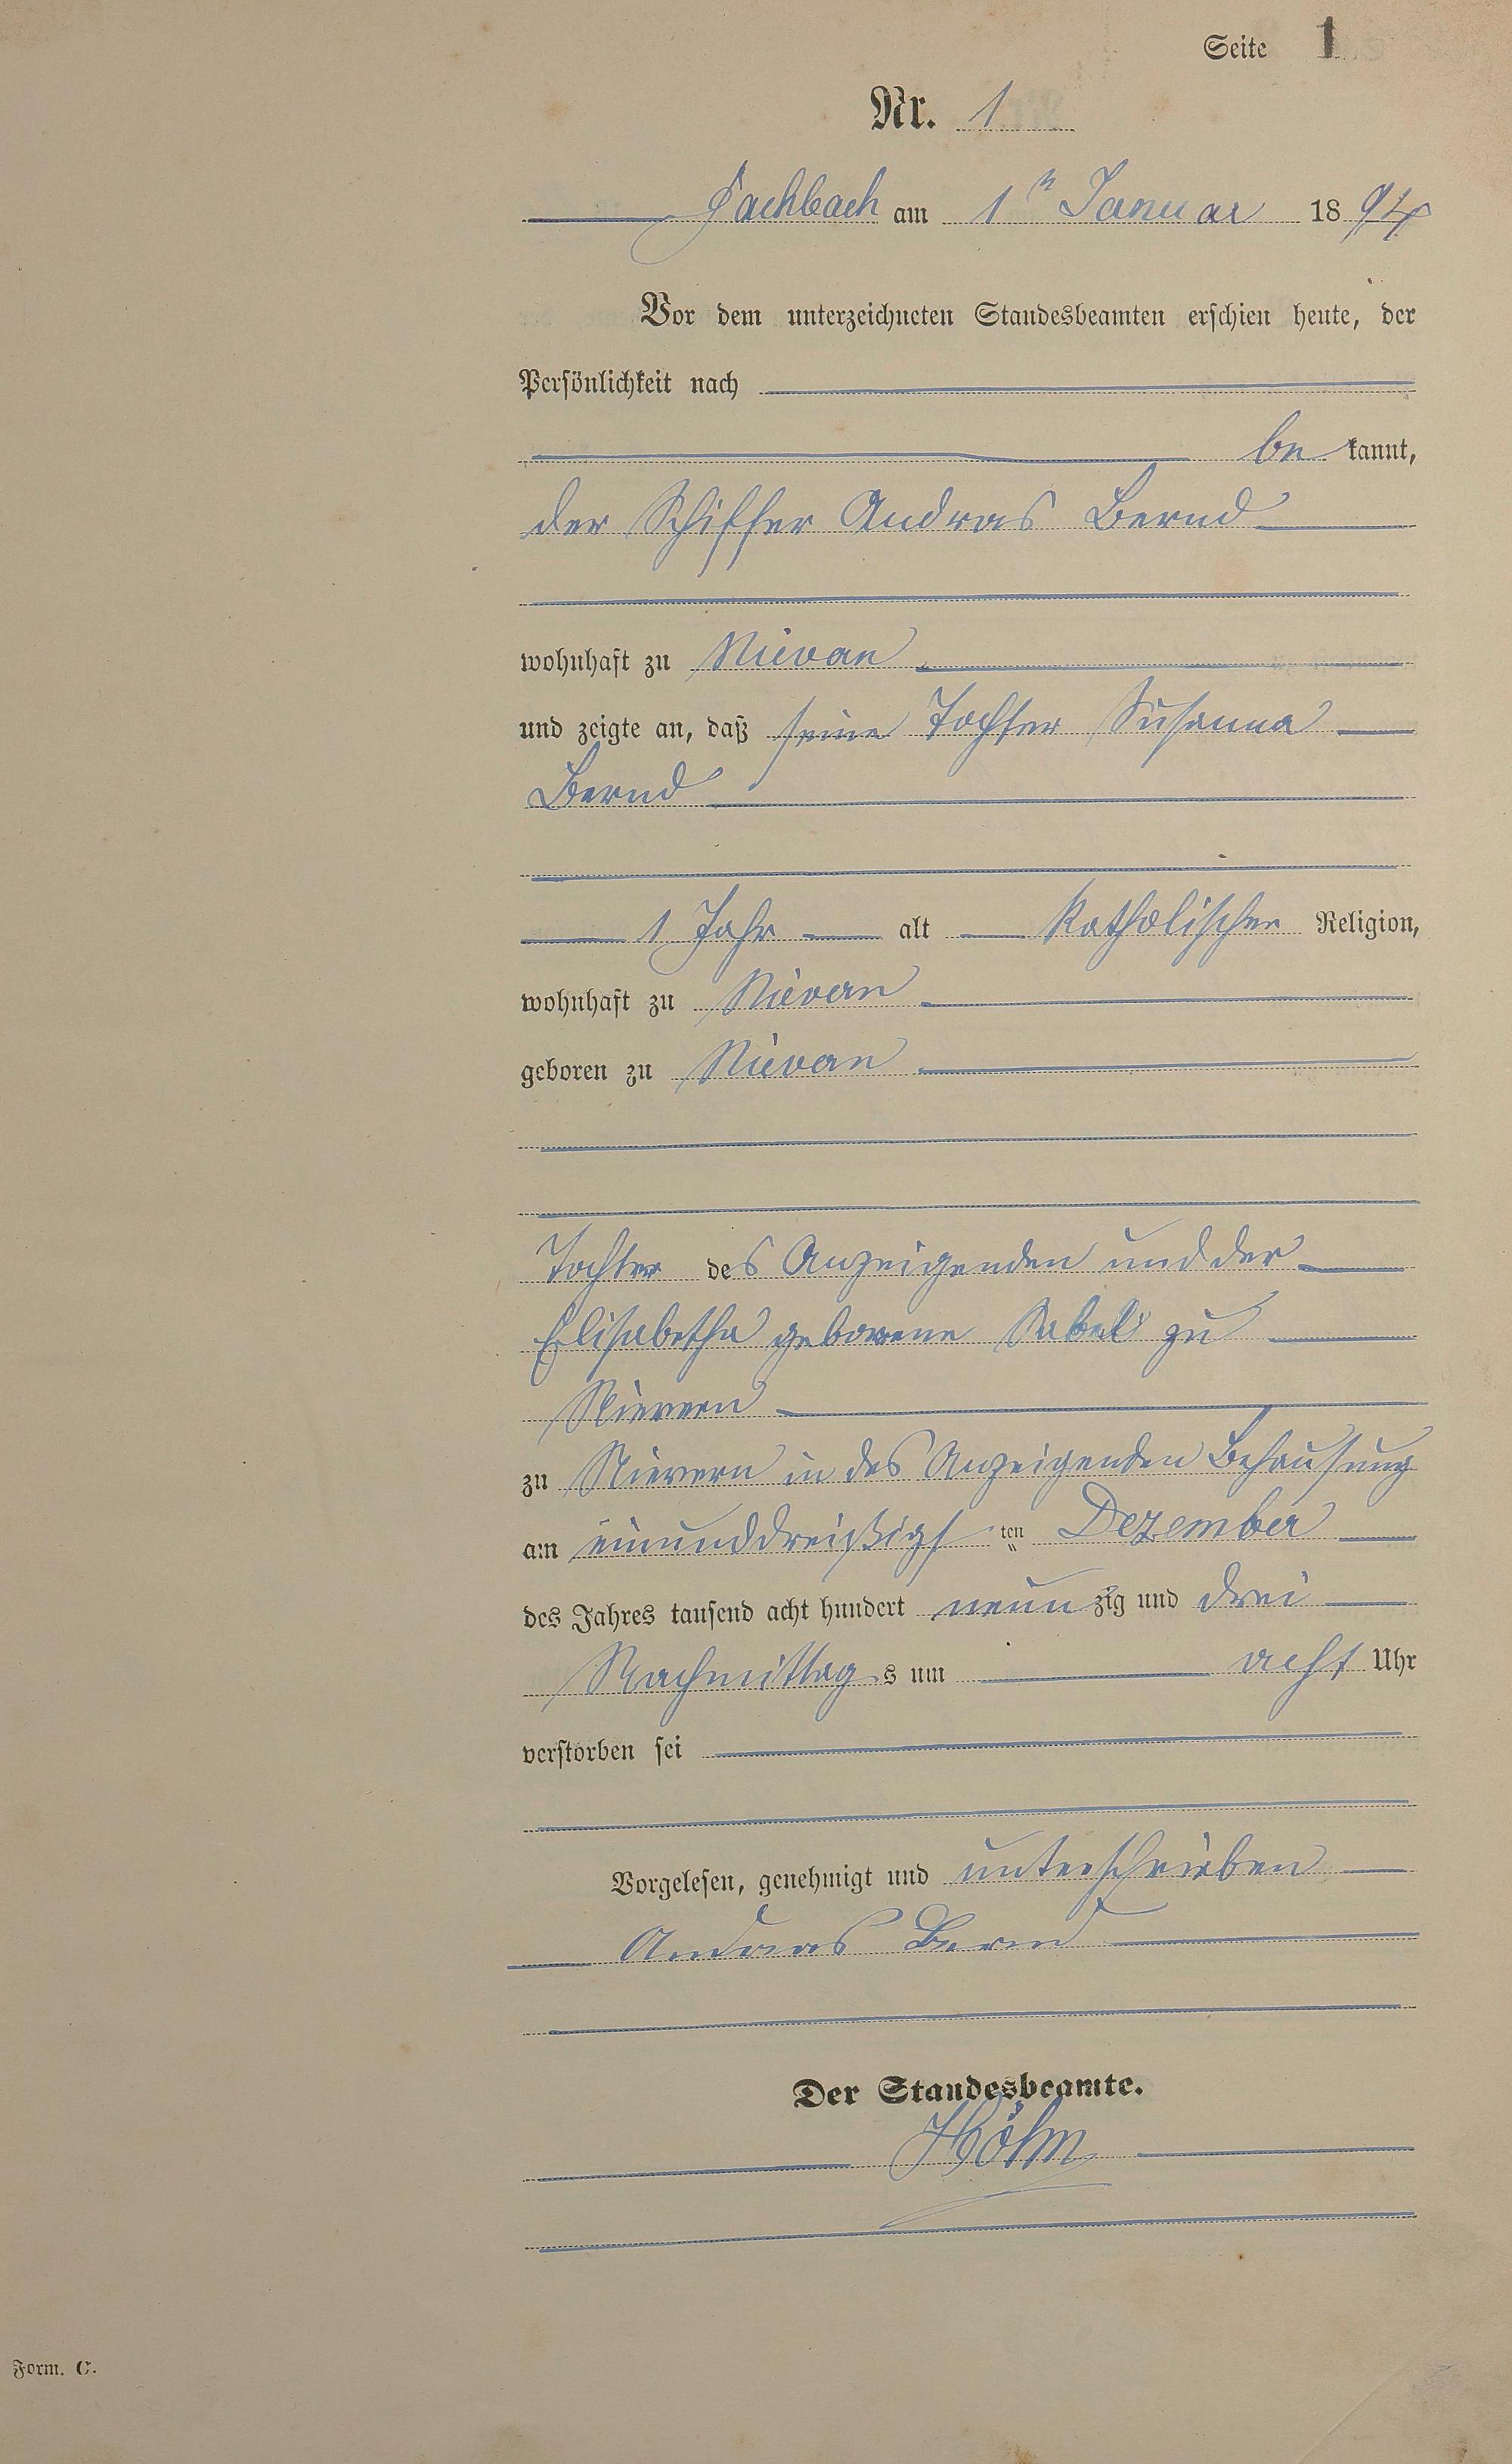 Seite 1
Nr. 1
Fachbach am 1n Januar 1894
Vor dem unterzeichneten Standesbeamten erschien heute, der
Persönlichkeit nach
be kannt,
der Schiffer Andras Bernd
wohnhaft zu Nievern
und zeigte an, daß seine Tochter Susanna
Bernd
1 Jahr alt katholischer Religion,
wohnhaft zu Nievern
geboren zu Nievern
Tochter des Anzeigenden und der
Elisabetha geborene Sabel zu
Nievern
zu Nievern in des Anzeigenden Behausung
am einunddreißigs ten Dezember
des Jahres tausend acht hundert neunzig und drei
Nachmittags um acht Uhr
verstorben sei
Vorgelesen, genehmigt und unterschrieben
Andras Bernd
Der Standesbeamte.
Form. C.